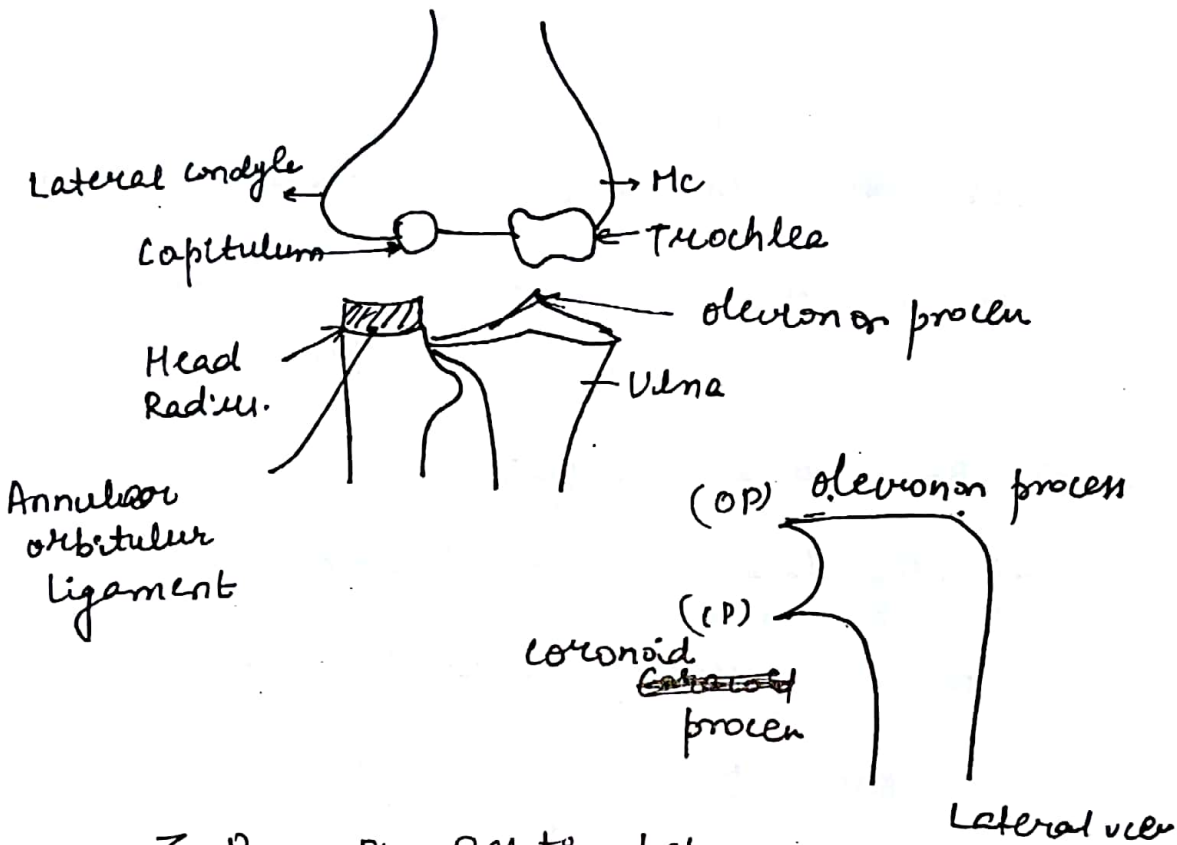 Lateral condyle
Mc
Capitulum
Trochlea
olecronon process
Head
Radius.
Ulna
Annular
orbitulur
ligament
(OP) olecronon process
(CP)
coronoid
process
Lateral view